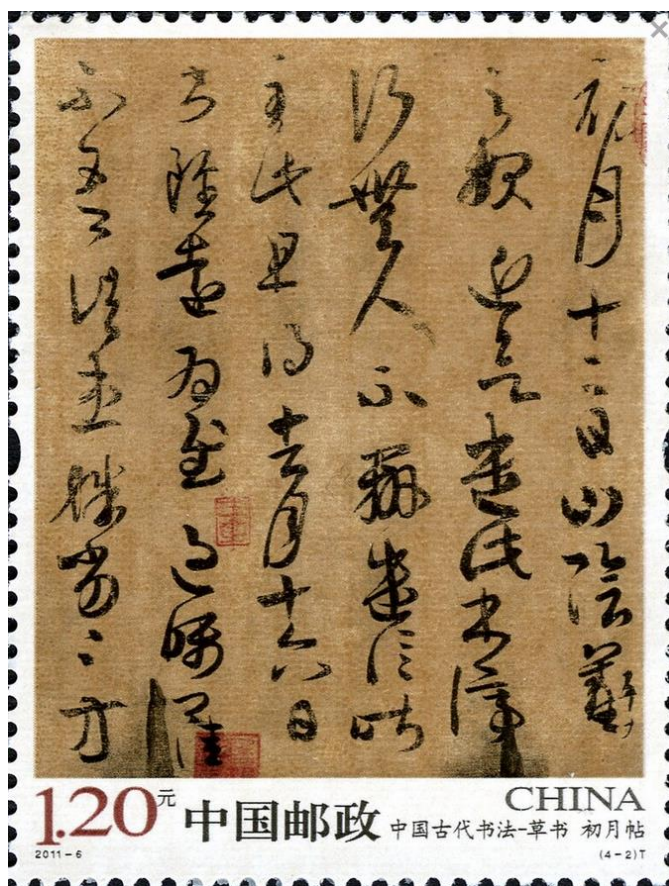 初月十二日山陰羲
之報近欲遣此書停
行無人不辦遣信昨
至此且得去月十六日
書雖遠為慰過囑卿佳
不吾諸患殊勞〻方
1.20元 中国邮政 CHINA
中国古代书法-草书 初月帖
2011-6 (4-2)T